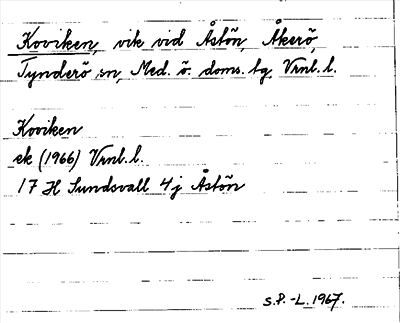 Koviken, vik vid Åstön, Åkerö,
Tynderö sn, Med. ö. doms. tg, Vrnl. l.
Koviken
ek (1966) Vrnl. l.
17 H Sundsvall 4j Åstön
S.P.-L. 1967.